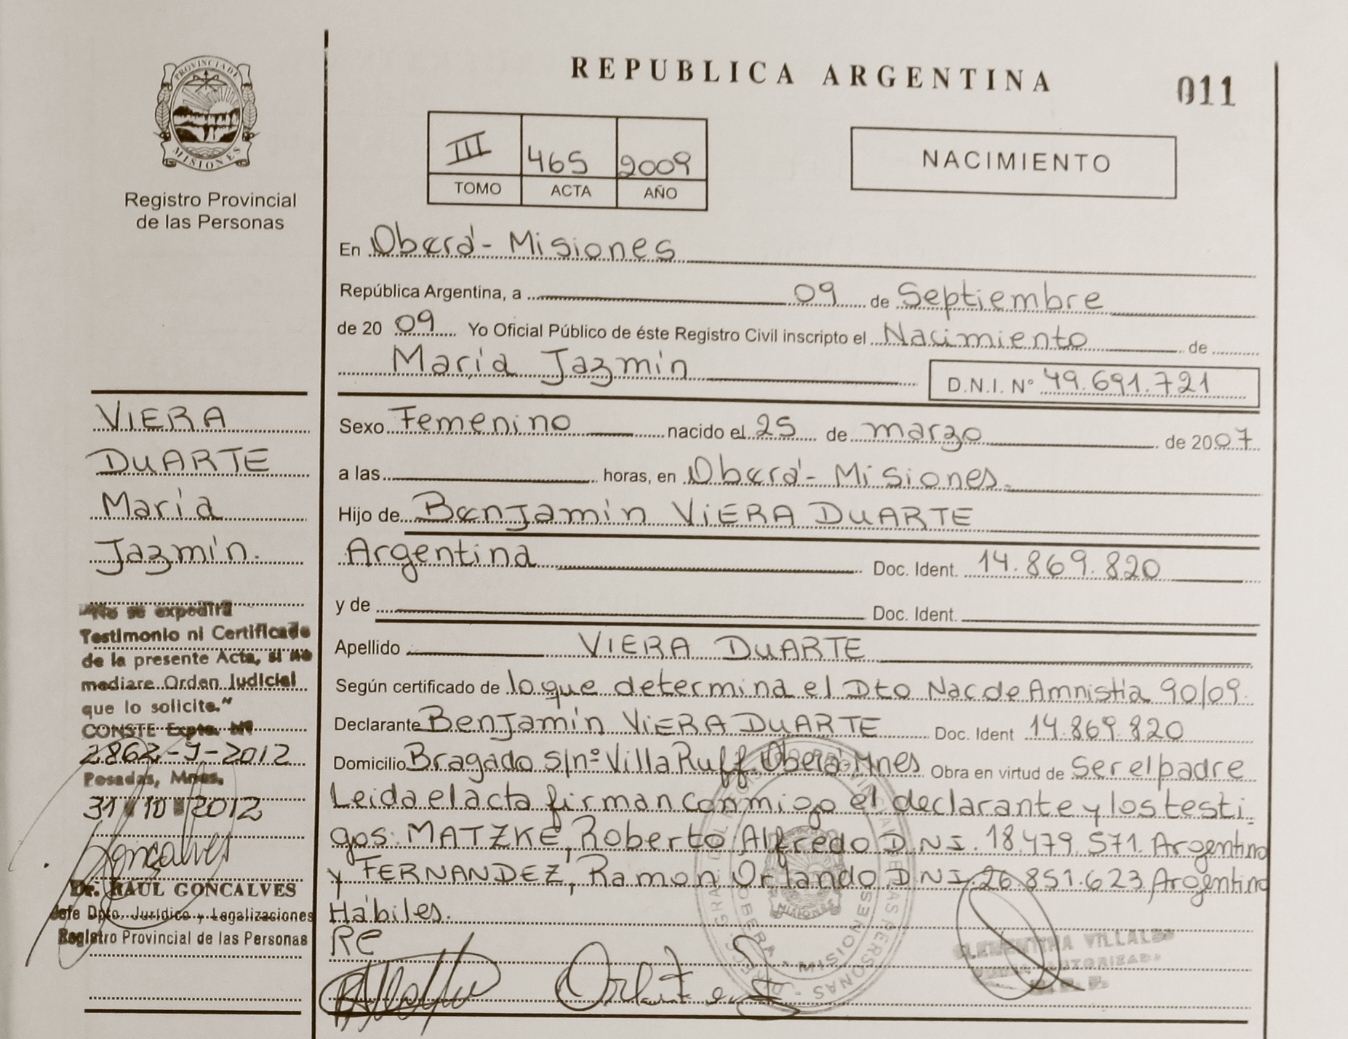 REPUBLICA ARGENTINA
011
PROVINCIA DE
MISIONES
Registro Provincial
de las Personas
III 465 2009
TOMO ACTA AÑO
NACIMIENTO
En Oberá - Misiones
República Argentina, a 09 de Septiembre
de 2009 Yo Oficial Público de éste Registro Civil inscripto el Nacimiento de
María Jazmín D.N.I. Nº 49.691.721
Sexo Femenino nacido el 25 de marzo de 2007
a las horas, en Oberá - Misiones.
Hijo de Benjamín VIERA DUARTE
Argentina Doc. Ident. 14.869.820
y de Doc. Ident.
Apellido VIERA DUARTE
Según certificado de lo que determina el Dto Nac de Amnistía 90/09.
Declarante Benjamín VIERA DUARTE Doc. Ident 14.869.820
Domicilio Bragado s/nº Villa Ruff. Oberá Mnes Obra en virtud de Ser el padre
Leida el acta firman conmigo el declarante y los testi-
gos: MATZKE, Roberto Alfredo D.N.I. 18.479.571. Argentino
y FERNANDEZ, Ramon Orlando D.N.I. 26.851.623 Argentino
Hábiles.
RC
VIERA
DUARTE
María
Jazmín.
"No se expedirá
Testimonio ni Certificado
de la presente Acta, si no
mediare Orden Judicial
que lo solicite."
CONSTE Expte. Nº
2862-J-2012
Posadas, Mnes.
31 10 2012
Goncalves
Dr. RAUL GONCALVES
Jefe Dpto. Jurídico y Legalizaciones
Registro Provincial de las Personas
OBERA - MISIONES
PERSONAS
MISIONES
CLEMENTINA VILLALBA
AUTORIZADA